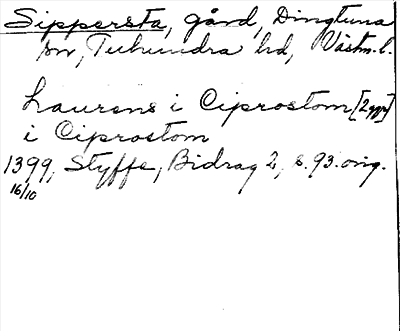 Sippersta, gård, Dingtuna
sn, Tuhundra hd, Västm.l.
Laurens i Ciprostom [2 ggr]
i Ciprostom
1399, Styffe, Bidrag 2, s. 93. orig.
16/10